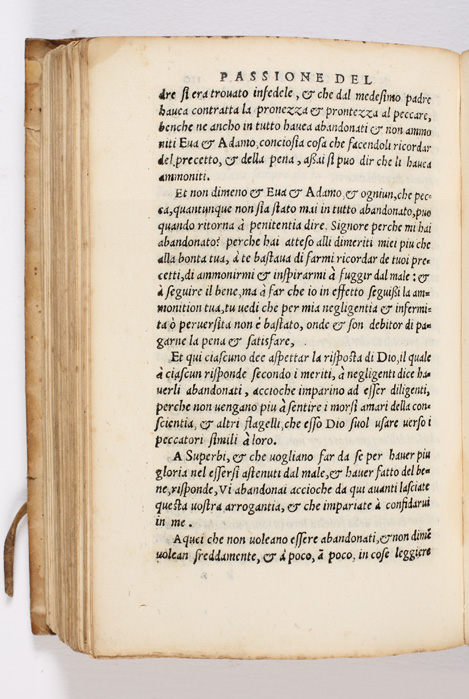 PASSIONE DEL
dre si era trouato infedele, & che dal medesimo padre
hauea contratta la pronezza & prontezza al peccare,
benche ne ancho in tutto hauea abandonati & non ammo
niti Eua & Adamo, conciosia cosa che facendoli ricordar
del precetto, & della pena, assai si puo dir che li hauea
ammoniti.
Et non dimeno & Eua & Adamo, & ogniun, che pec=
ca, quantunque non sia stato mai in tutto abandonato, puo
quando ritorna à penitentia dire. Signore perche mi hai
abandonato? perche hai atteso alli dimeriti miei piu che
alla bonta tua, à te bastaua di farmi ricordar de tuoi pre=
cetti, di ammonirmi & inspirarmi à fuggir dal male : &
à seguire il bene, ma à far che io in effetto seguissi la am=
monition tua, tu uedi che per mia negligentia & infermi=
ta ò peruersita non è bastato, onde & son debitor di pa=
garne la pena & satisfare,
Et qui ciascuno dee aspettar la risposta di Dio, il quale
à ciascun risponde secondo i meriti, à negligenti dice ha=
uerli abandonati, accioche imparino ad esser diligenti,
perche non uengano piu à sentire i morsi amari della con=
scientia, & altri flagelli, che esso Dio suol usare uerso i
peccatori simili à loro.
A Superbi, & che uogliano far da se per hauer piu
gloria nel essersi astenuti dal male, & hauer fatto del be=
ne, risponde, Vi abandonai accioche da qui auanti lasciate
questa uostra arrogantia, & che impariate à confidarui
in me.
A quei che non uoleano essere abandonati, & non dimẽ
uolean freddamente, & à poco, à poco, in cose leggiere